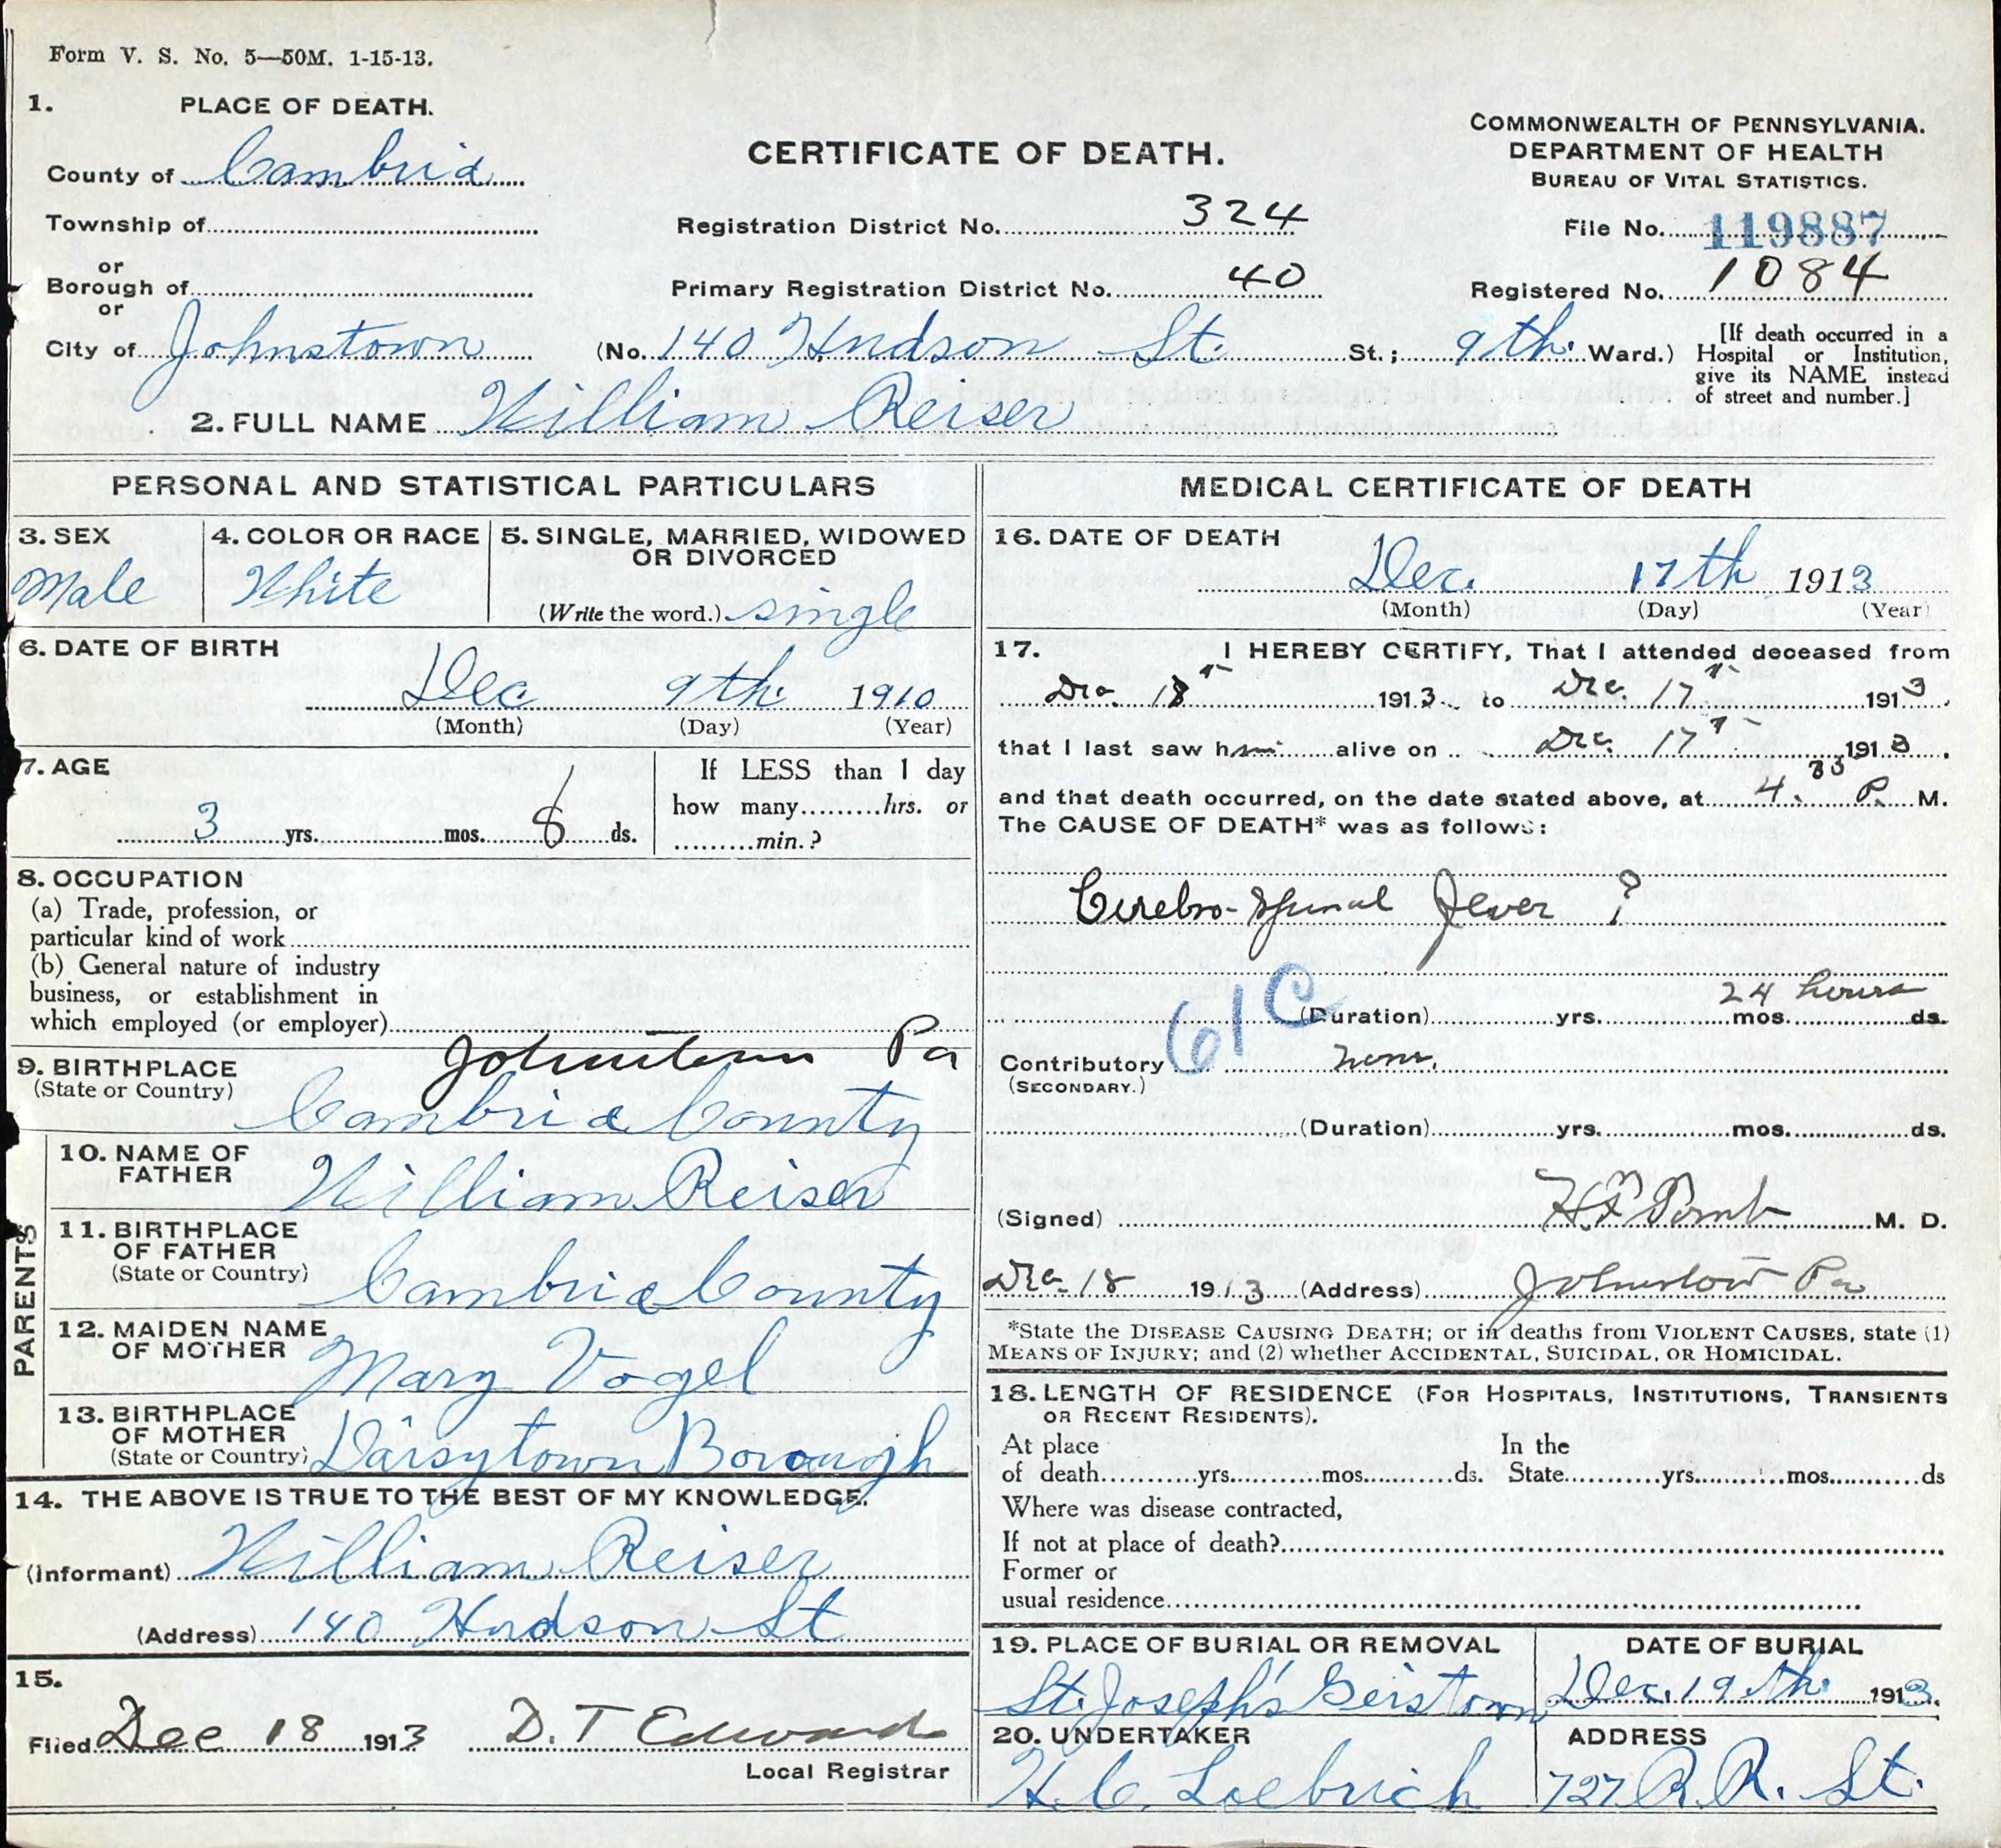 Form V. S. No. 5—50M. 1-15-13.
1. PLACE OF DEATH.
County of Cambria
Township of
or
Borough of
or
City of Johnstown
CERTIFICATE OF DEATH.
Registration District No. 324
Primary Registration District No. 40
(No. 140 Hudson St. St.; 9th. Ward.)
COMMONWEALTH OF PENNSYLVANIA.
DEPARTMENT OF HEALTH
BUREAU OF VITAL STATISTICS.
File No. 119887
Registered No. 1084
[If death occurred in a
Hospital or Institution,
give its NAME instead
of street and number.]
2. FULL NAME William Reiser
PERSONAL AND STATISTICAL PARTICULARS
3. SEX
Male
4. COLOR OR RACE
White
5. SINGLE, MARRIED, WIDOWED
OR DIVORCED
(Write the word.) single
6. DATE OF BIRTH
Dec 9th. 1910
(Month) (Day) (Year)
7. AGE
3 yrs. mos. 8 ds.
If LESS than 1 day
how many hrs. or
min.?
8. OCCUPATION
(a) Trade, profession, or
particular kind of work
(b) General nature of industry
business, or establishment in
which employed (or employer)
9. BIRTHPLACE
(State or Country)
Johnstown Pa
Cambria County
PARENTS
10. NAME OF
FATHER
William Reiser
11. BIRTHPLACE
OF FATHER
(State or Country)
Cambria County
12. MAIDEN NAME
OF MOTHER
Mary Vogel
13. BIRTHPLACE
OF MOTHER
(State or Country)
Daisytown Borough
14. THE ABOVE IS TRUE TO THE BEST OF MY KNOWLEDGE.
(Informant) William Reiser
(Address) 140 Hudson St
15.
Filed Dec 18 1913 D. T Edwards
Local Registrar
MEDICAL CERTIFICATE OF DEATH
16. DATE OF DEATH
Dec. 17th 1913
(Month) (Day) (Year)
17. I HEREBY CERTIFY, That I attended deceased from
Dec. 1913 to Dec. 17 1913
that I last saw him alive on Dec. 17 1913
and that death occurred, on the date stated above, at 4.35 P. M.
The CAUSE OF DEATH* was as follows:
Cerebro-Spinal Fever ?
61C
24 hours
(Duration) yrs. mos. ds.
Contributory none.
(SECONDARY.)
(Duration) yrs. mos. ds.
(Signed) H F Tomb M. D.
Dec. 18 1913 (Address) Johnstown Pa
*State the DISEASE CAUSING DEATH; or in deaths from VIOLENT CAUSES, state (1)
MEANS OF INJURY; and (2) whether ACCIDENTAL, SUICIDAL, OR HOMICIDAL.
18. LENGTH OF RESIDENCE (FOR HOSPITALS, INSTITUTIONS, TRANSIENTS
OR RECENT RESIDENTS).
At place In the
of death yrs. mos. ds. State yrs. mos. ds
Where was disease contracted,
If not at place of death?
Former or
usual residence
19. PLACE OF BURIAL OR REMOVAL
St. Joseph's Geistown
DATE OF BURIAL
Dec. 19th. 1913.
20. UNDERTAKER
H. C. Loebrich
ADDRESS
727 R. R. St.